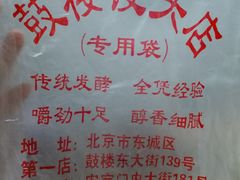 鼓楼馒头店
(专用袋)
传统发酵 全凭经验
嚼劲十足 醇香细腻
地 址: 北京市东城区
第一店: 鼓楼东大街139号
安定门内大街181号